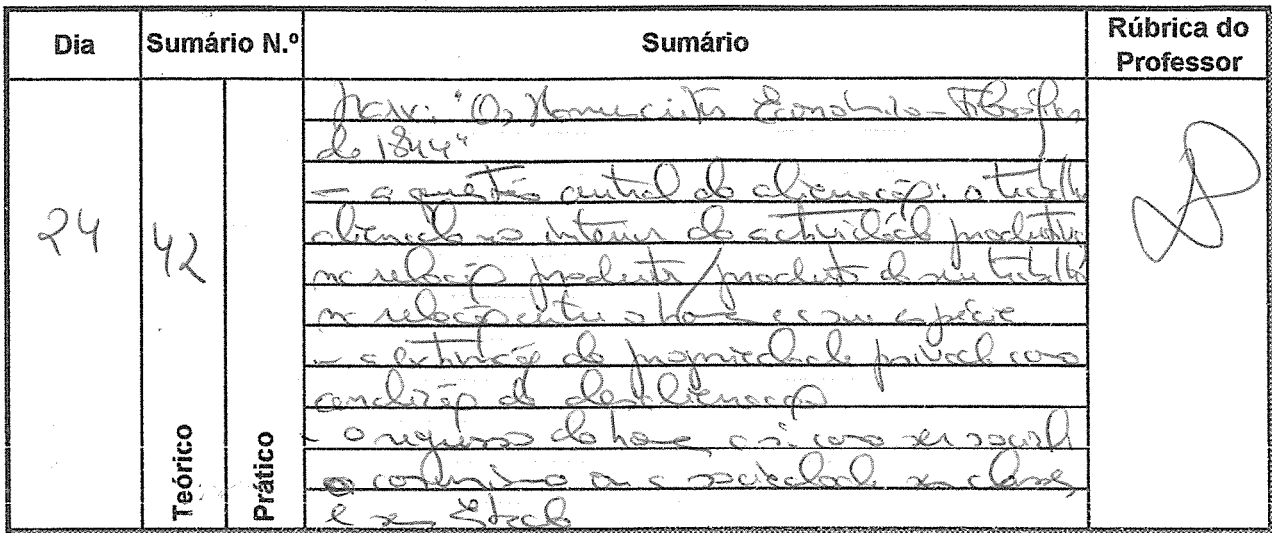 Dia Sumário N.º Sumário Rúbrica do Professor
24 42
Teórico Prático
Marx: "Os Manuscritos Económico-Filosóficos
de 1844"
- a questão central da alienação: o trabalho
alienado no interior da actividade produtiva
na relação produtor/produto do seu trabalho
na relação entre o homem e a sua espécie
- a extinção da propriedade privada como
condição da desalienação
- o regresso do homem a si como ser social
o comunismo ou a sociedade sem classes
e sem Estado